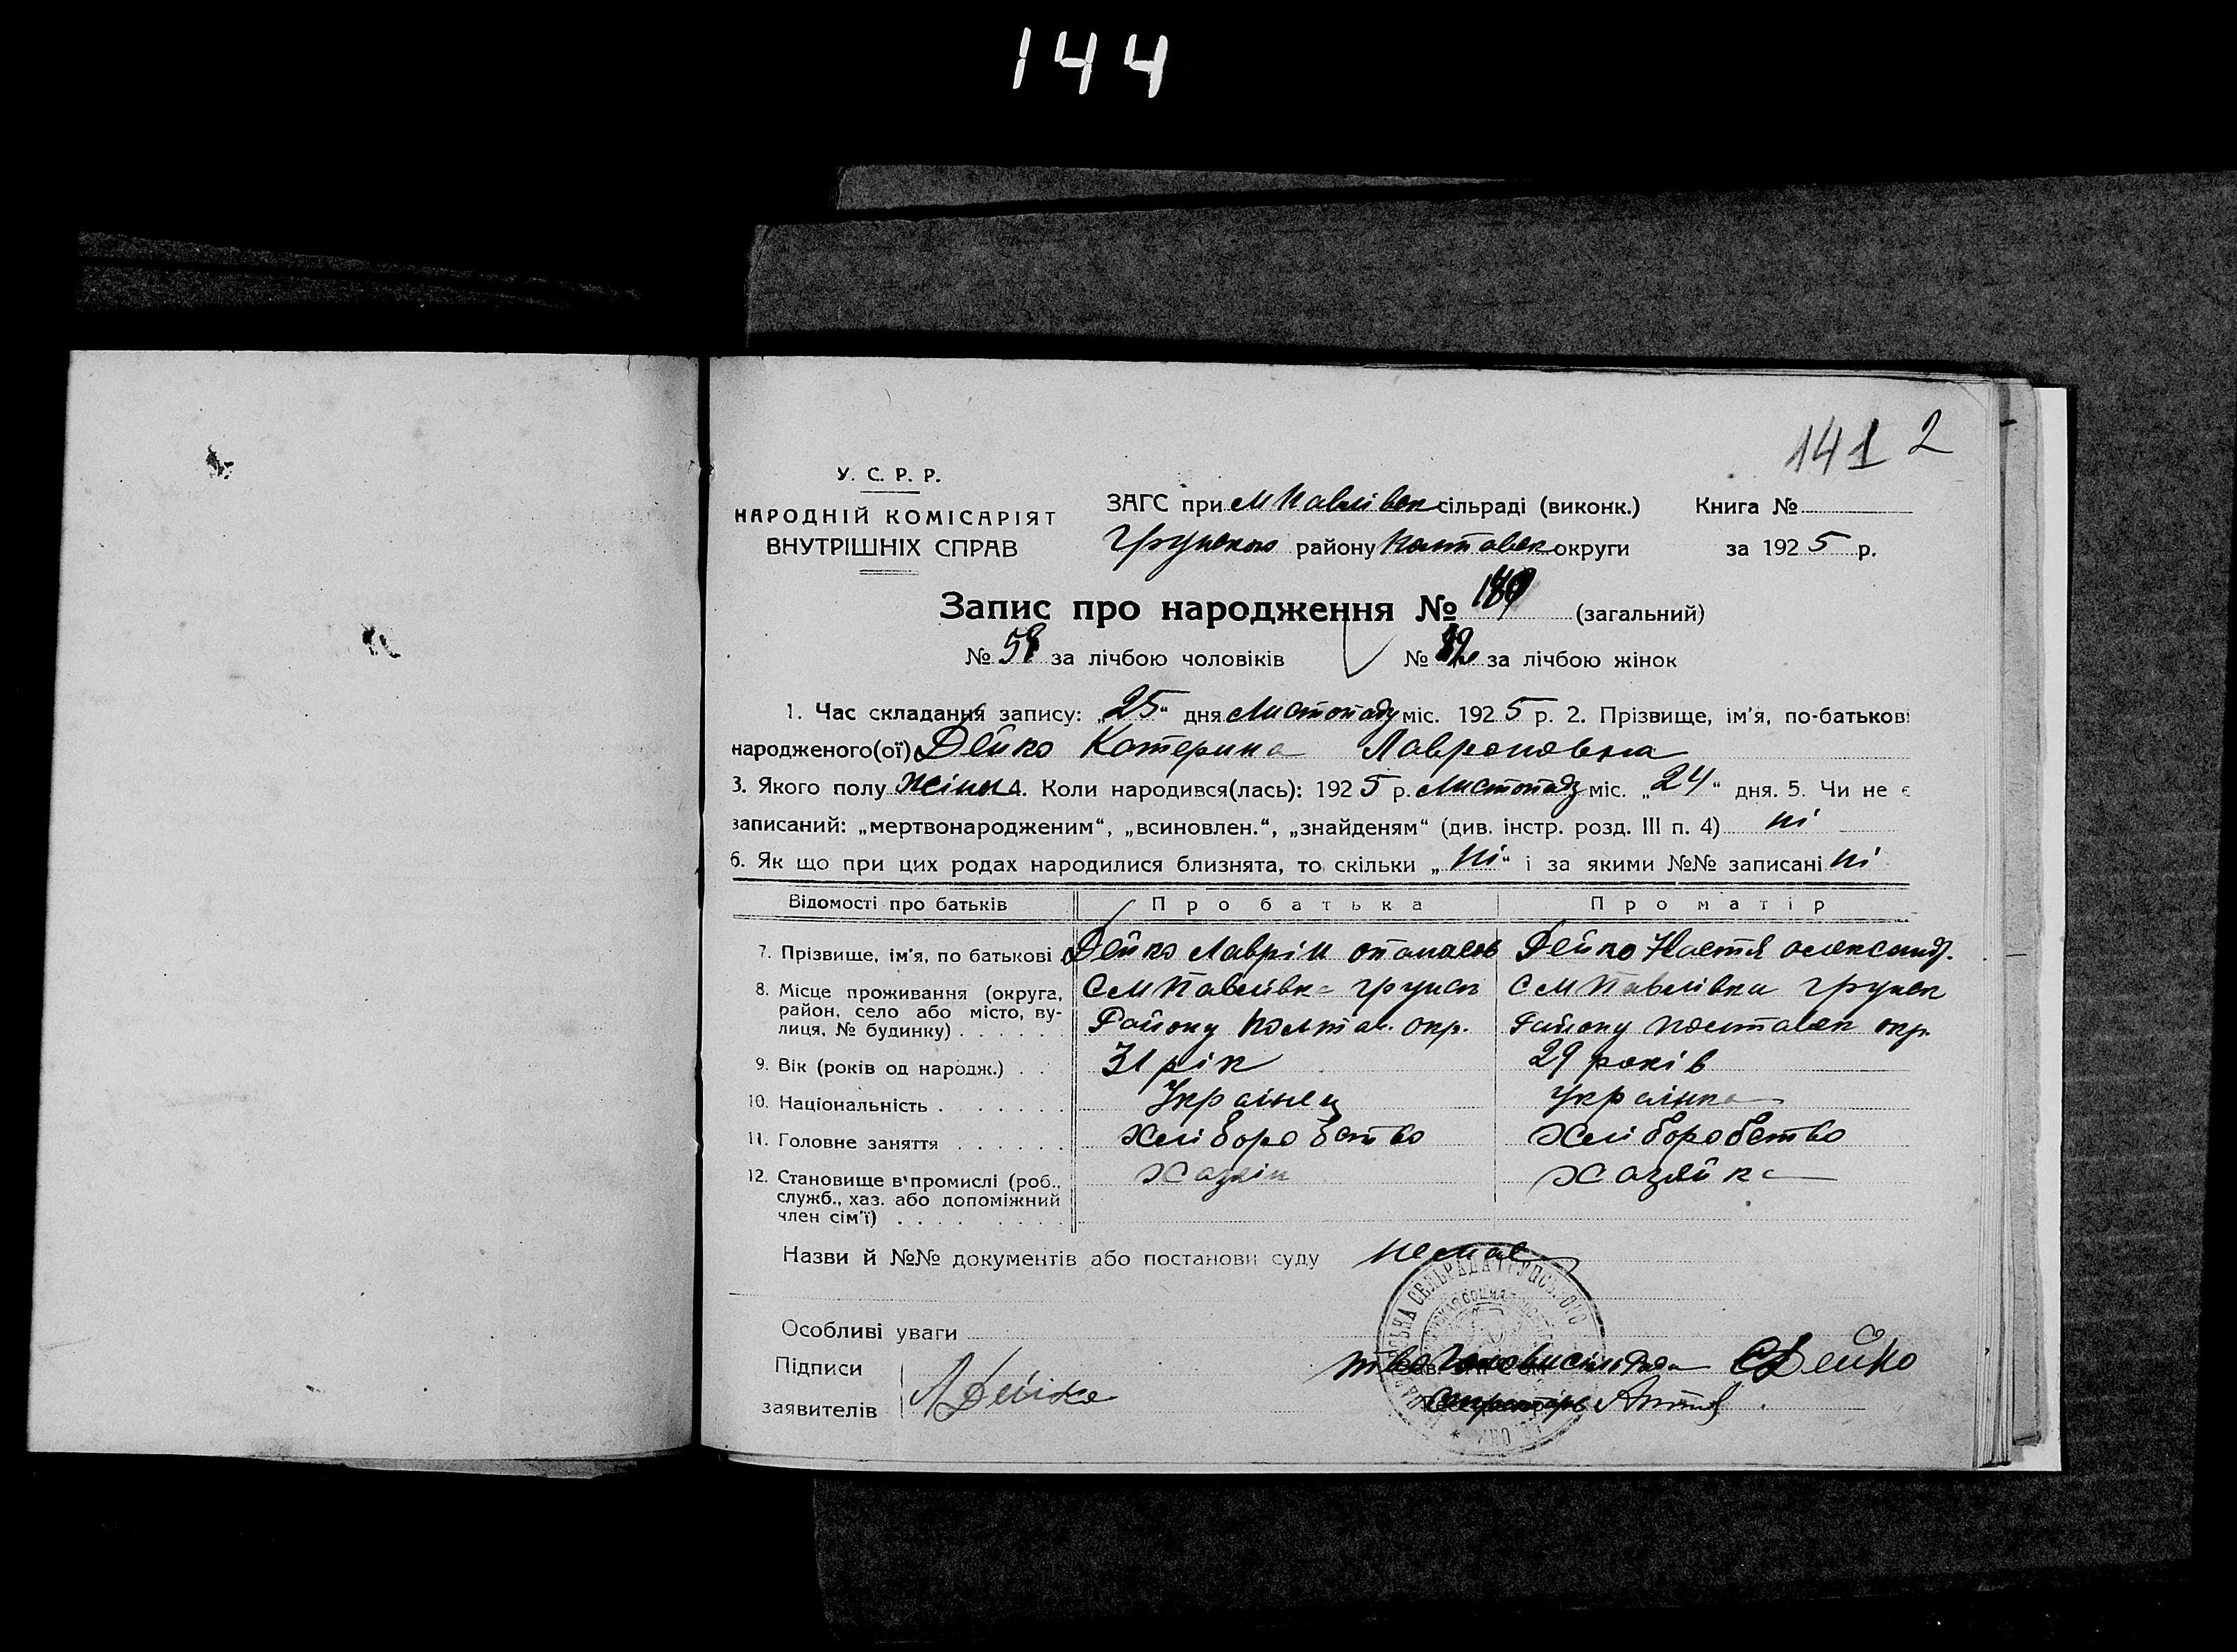 144
141 2
У. С. Р. Р.
НАРОДНІЙ КОМІСАРІЯТ
ВНУТРІШНІХ СПРАВ
ЗАГС при М Павлівск сільраді (виконк.) Книга №
Грунського району Полтавск округи за 1925 р.
Запис про народження № (загальний)
№ за лічбою чоловіків № за лічбою жінок
1. Час складання запису: „25“ дня Листопаду міс. 1925 р. 2. Прізвище, ім'я, по-батькові
народженого(ої) Дейко Катерина Лавроновна
3. Якого полу жіноч 4. Коли народився(лась): 1925 р. Листопаду міс. „24“ дня. 5. Чи не є
записаний: „мертвонародженим“, „всиновлен.“, „знайденям“ (див. інстр. розд. III п. 4) ні
6. Як що при цих родах народилися близнята, то скільки „ні“ і за якими №№ записані ні
Відомості про батьків Про батька Про матір
7. Прізвище, ім'я, по батькові Дейко Лаврін опанасов Дейко Настя олександ.
8. Місце проживання (округа, район, село або місто, вулиця, № будинку) С М Павлівка Грунск С М Павлівка Грунск
Району Полтав. окр. Району Полтавск окр.
9. Вік (років од народж.) 31 рік 29 років
10. Національність Українец Українка
11. Головне заняття Хліборобство Хліборобство
12. Становище в промислі (роб., служб., хаз. або допоміжний член сім'ї) Хазяін Хазяйка
Назви й №№ документів або постанови суду немає
Особливі уваги
Підписи
заявителів
Л Дейко
Голови сільради С Дейко
Секретарь